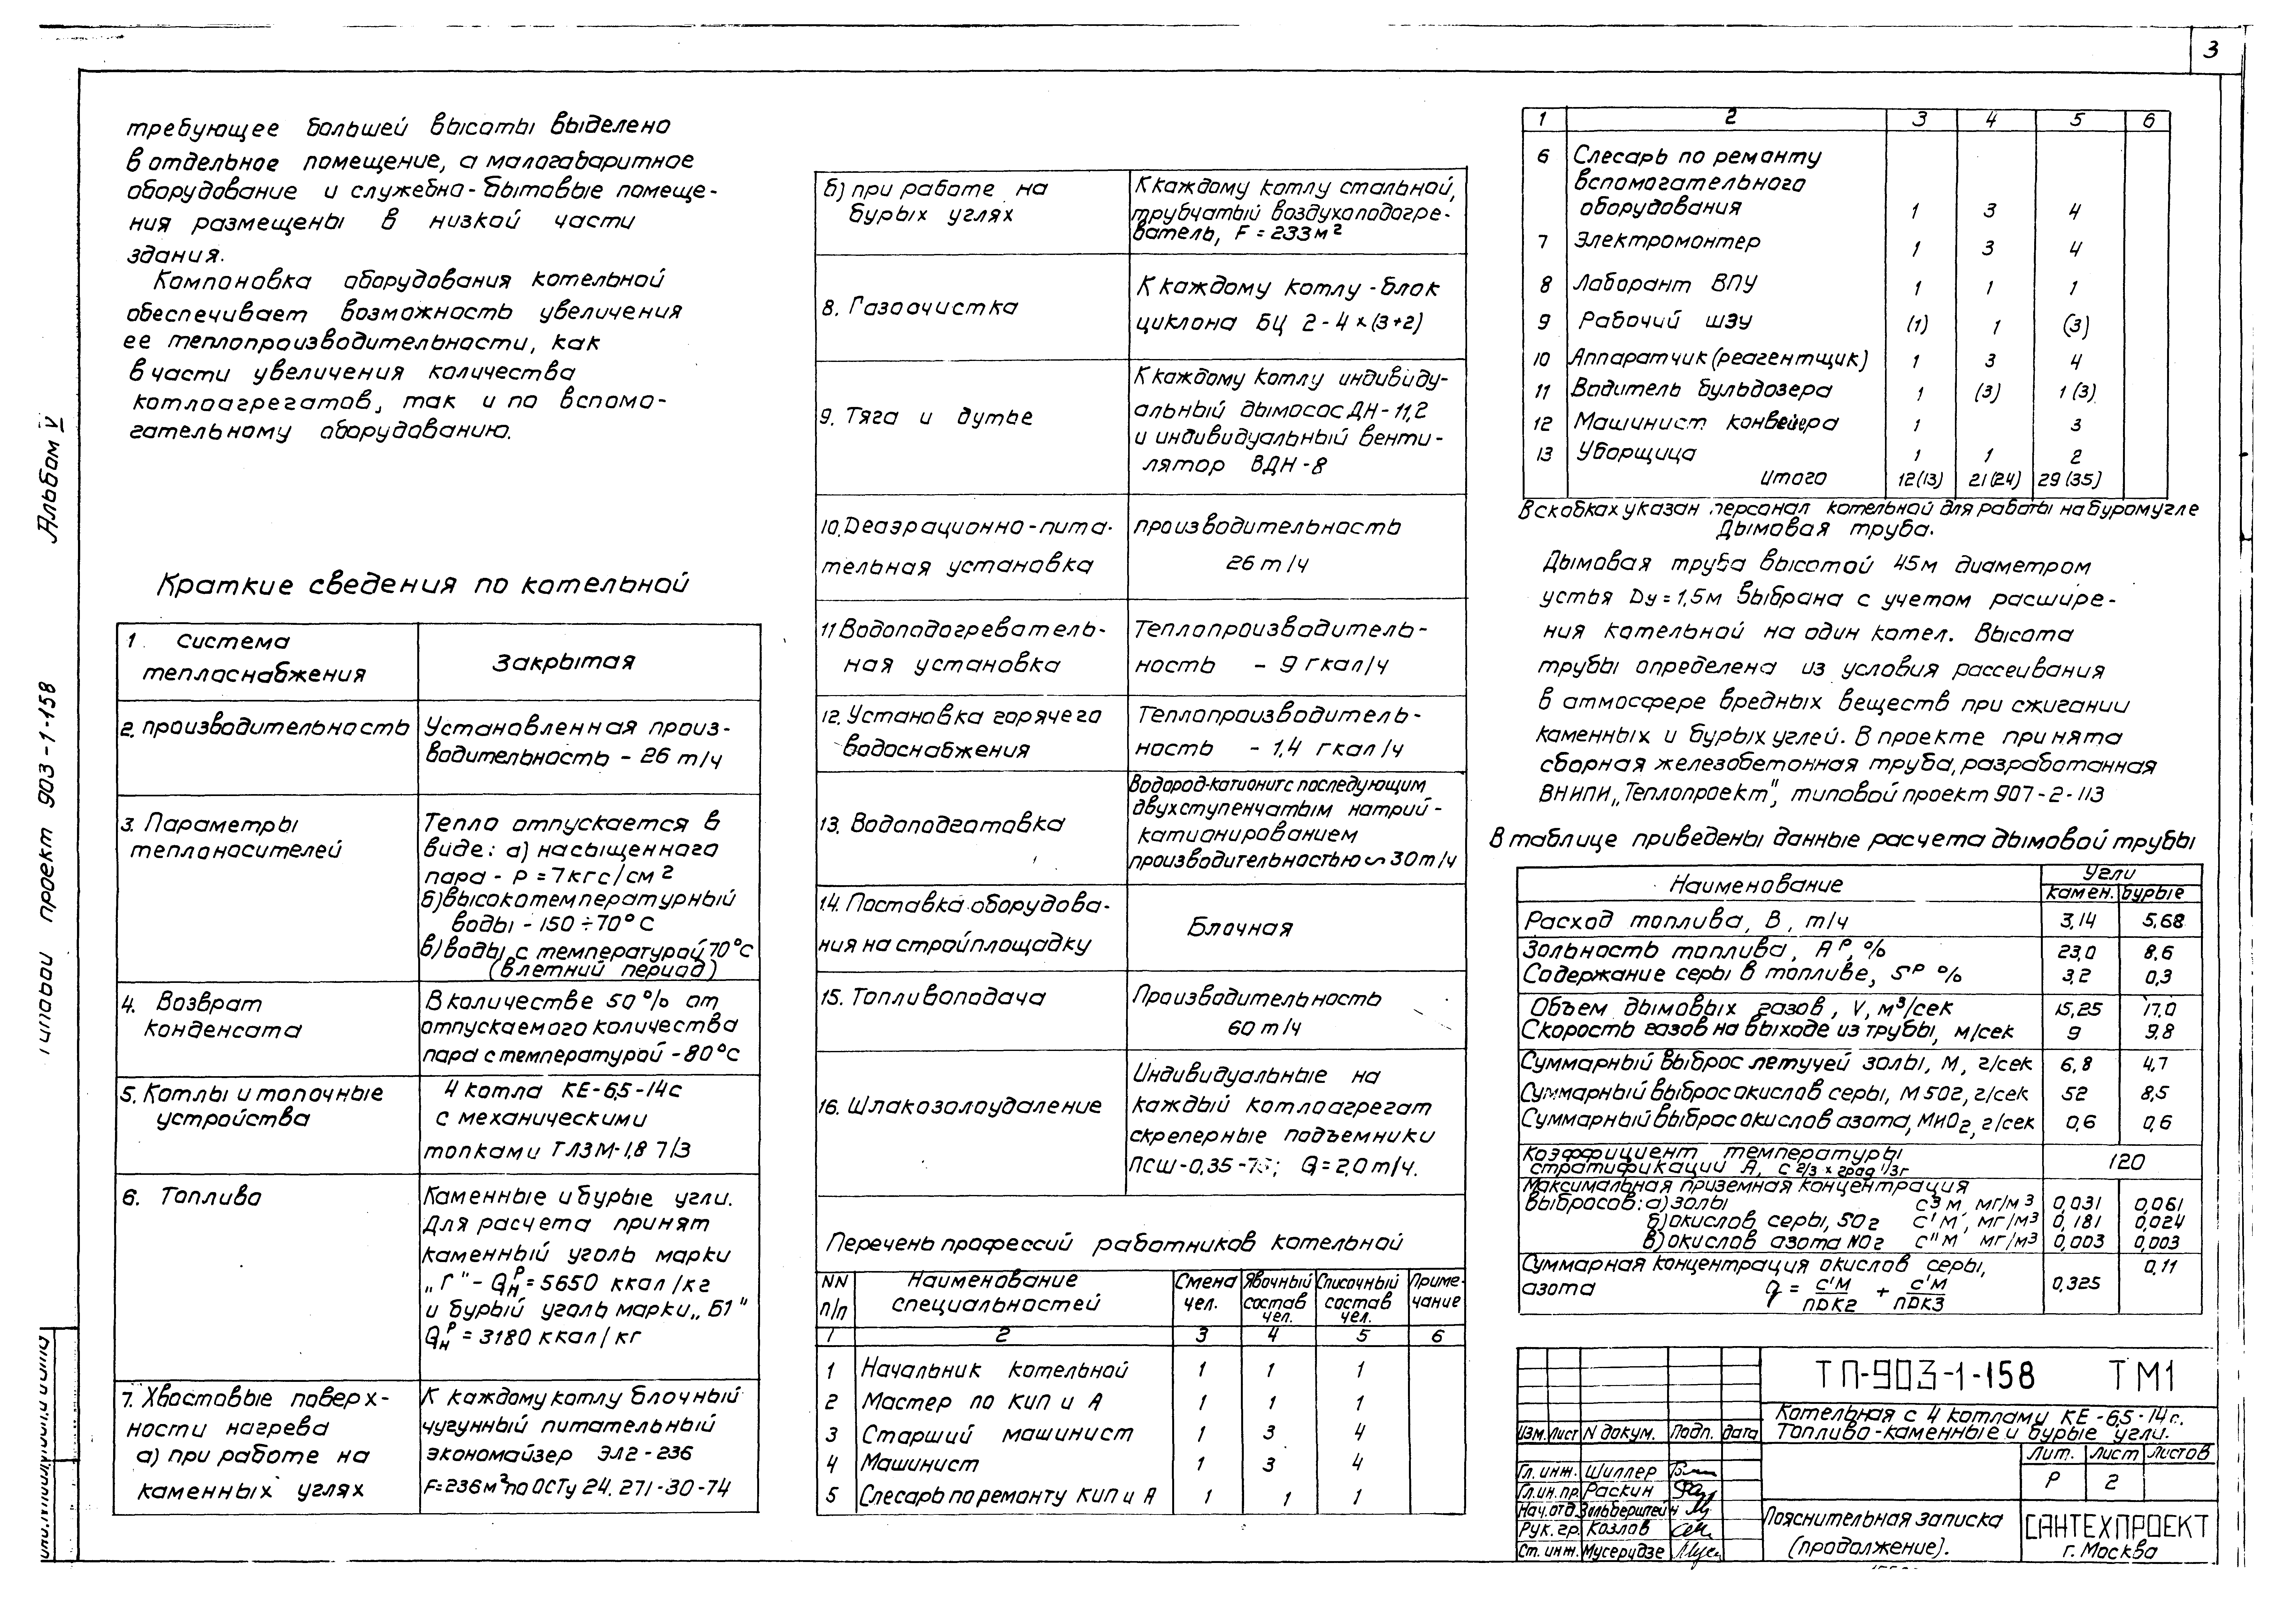 3
Альбом V
Типовой проект 903-1-158
требующее большей высоты выделено
в отдельное помещение, а малогабаритное
оборудование и служебно-бытовые помеще-
ния размещены в низкой части
здания.
Компоновка оборудования котельной
обеспечивает возможность увеличения
ее теплопроизводительности, как
в части увеличения количества
котлоагрегатов, так и по вспомо-
гательному оборудованию.
Краткие сведения по котельной
1. Система
теплоснабжения
Закрытая
2. производительность
Установленная произ-
водительность - 26 т/ч
3. Параметры
теплоносителей
Тепло отпускается в
виде: а) насыщенного
пара - Р = 7 кгс/см²
б) высокотемпературный
воды - 150÷70°С
в) воды с температурой 70°С
(в летний период)
4. Возврат
конденсата
В количестве 50% от
отпускаемого количества
пара с температурой - 80°С
5. Котлы и топочные
устройства
4 котла КЕ-6,5-14с
с механическими
топками ТЛЗМ-1,8 7/3
6. Топливо
Каменные и бурые угли.
Для расчета принят
каменный уголь марки
„Г" - Qнᴾ = 5650 ккал/кг
и бурый уголь марки „Б1"
Qнᴾ = 3180 ккал/кг
7. Хвостовые поверх-
ности нагрева
а) при работе на
каменных углях
К каждому котлу блочный
чугунный питательный
экономайзер ЭЛ2-236
F=236м² по ОСТу 24.271-30-74
б) при работе на
бурых углях
К каждому котлу стальной,
трубчатый воздухоподогре-
ватель, F = 233 м²
8. Газоочистка
К каждому котлу - блок
циклона БЦ 2-4×(3+2)
9. Тяга и дутье
К каждому котлу индивиду-
альный дымосос ДН-11,2
и индивидуальный венти-
лятор ВДН-8
10. Деаэрационно-пита-
тельная установка
производительность
26 т/ч
11 Водоподогреватель-
ная установка
Теплопроизводитель-
ность - 9 гкал/ч
12. Установка горячего
водоснабжения
Теплопроизводитель-
ность - 1,4 гкал/ч
13. Водоподготовка
Водород-катионит с последующим
двухступенчатым натрий-
катионированием
производительностью ∽ 30 т/ч
14. Поставка оборудова-
ния на стройплощадку
Блочная
15. Топливоподача
Производительность
60 т/ч
16. Шлакозолоудаление
Индивидуальные на
каждый котлоагрегат
скреперные подъемники
ПСШ-0,35-75; Q = 2,0 т/ч.
Перечень профессий работников котельной
NN п/п Наименование специальностей Смена чел. Явочный состав чел. Списочный состав чел. Приме-чание
1 2 3 4 5 6
1 Начальник котельной 1 1 1
2 Мастер по КИП и А 1 1 1
3 Старший машинист 1 3 4
4 Машинист 1 3 4
5 Слесарь по ремонту КИП и А 1 1 1
1 2 3 4 5 6
6 Слесарь по ремонту
вспомогательного
оборудования 1 3 4
7 Электромонтер 1 3 4
8 Лаборант ВПУ 1 1 1
9 Рабочий ШЗУ (1) 1 (3)
10 Аппаратчик (реагентщик) 1 3 4
11 Водитель бульдозера 1 (3) 1 (3)
12 Машинист конвейера 1 3
13 Уборщица 1 1 2
Итого 12(13) 21(24) 29(35)
В скобках указан персонал котельной для работы на буром угле
Дымовая труба.
Дымовая труба высотой 45м диаметром
устья Ду = 1,5м выбрана с учетом расшире-
ния котельной на один котел. Высота
трубы определена из условия рассеивания
в атмосфере вредных веществ при сжигании
каменных и бурых углей. В проекте принята
сборная железобетонная труба, разработанная
ВНИПИ „Теплопроект", типовой проект 907-2-113
В таблице приведены данные расчета дымовой трубы
Наименование Угли
камен. бурые
Расход топлива, В, т/ч 3,14 5,68
Зольность топлива, Aᴾ, % 23,0 8,6
Содержание серы в топливе, Sᴾ % 3,2 0,3
Объем дымовых газов, V, м³/сек 15,25 17,0
Скорость газов на выходе из трубы, м/сек 9 9,8
Суммарный выброс летучей золы, М, г/сек 6,8 4,7
Суммарный выброс окислов серы, М SO2, г/сек 52 8,5
Суммарный выброс окислов азота, МNO2, г/сек 0,6 0,6
Коэффициент температуры
стратификации А, с 2/3 × град 1/3 г 120
Максимальная приземная концентрация
выбросов: а) золы СЗ М мг/м³ 0,031 0,061
б) окислов серы, SO2 С'М, мг/м³ 0,181 0,024
в) окислов азота NO2 С"М мг/м³ 0,003 0,003
Суммарная концентрация окислов серы, 0,11
азота q = С'М/ПДК2 + С'М/ПДК3 0,325
ТП-903-1-158 ТМ1
Котельная с 4 котлами КЕ-6,5-14с.
Топливо-каменные и бурые угли.
Изм. Лист N докум. Подп. Дата
Лит. Лист Листов
Р 2
Гл. инж. Шиллер
Гл. ин. пр. Раскин
Нач. отд. Зильберштейн
Рук. гр. Козлов
Ст. инж. Мусерудзе
Пояснительная записка
(продолжение).
САНТЕХПРОЕКТ
г. Москва